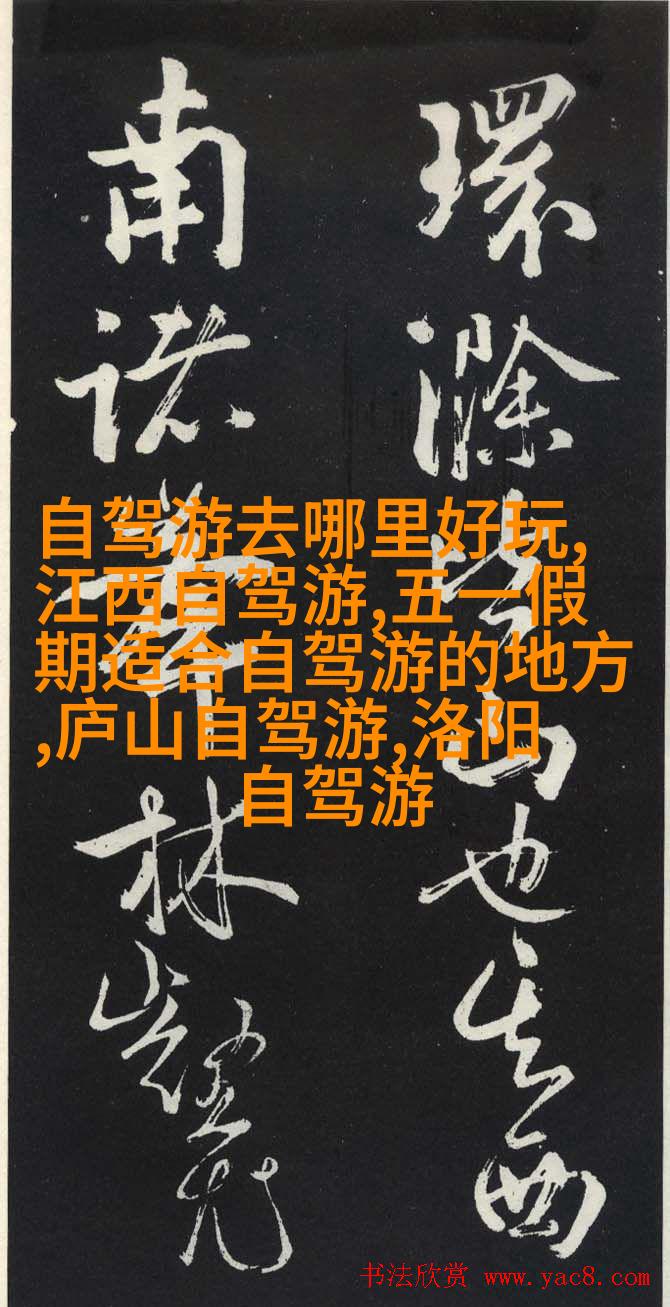 環滁皆山也其西
南諸峯林壑尤
自驾游去哪里好玩,
江西自驾游,五一假
期适合自驾游的地方
,庐山自驾游,洛阳
自驾游
书法欣赏 www.yac8.com